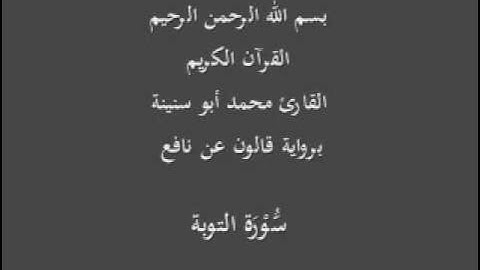 بسم الله الرحمن الرحيم
القرآن الكريم
القارئ محمد أبو سنينة
برواية قالون عن نافع
سُّوْرَة التوبة